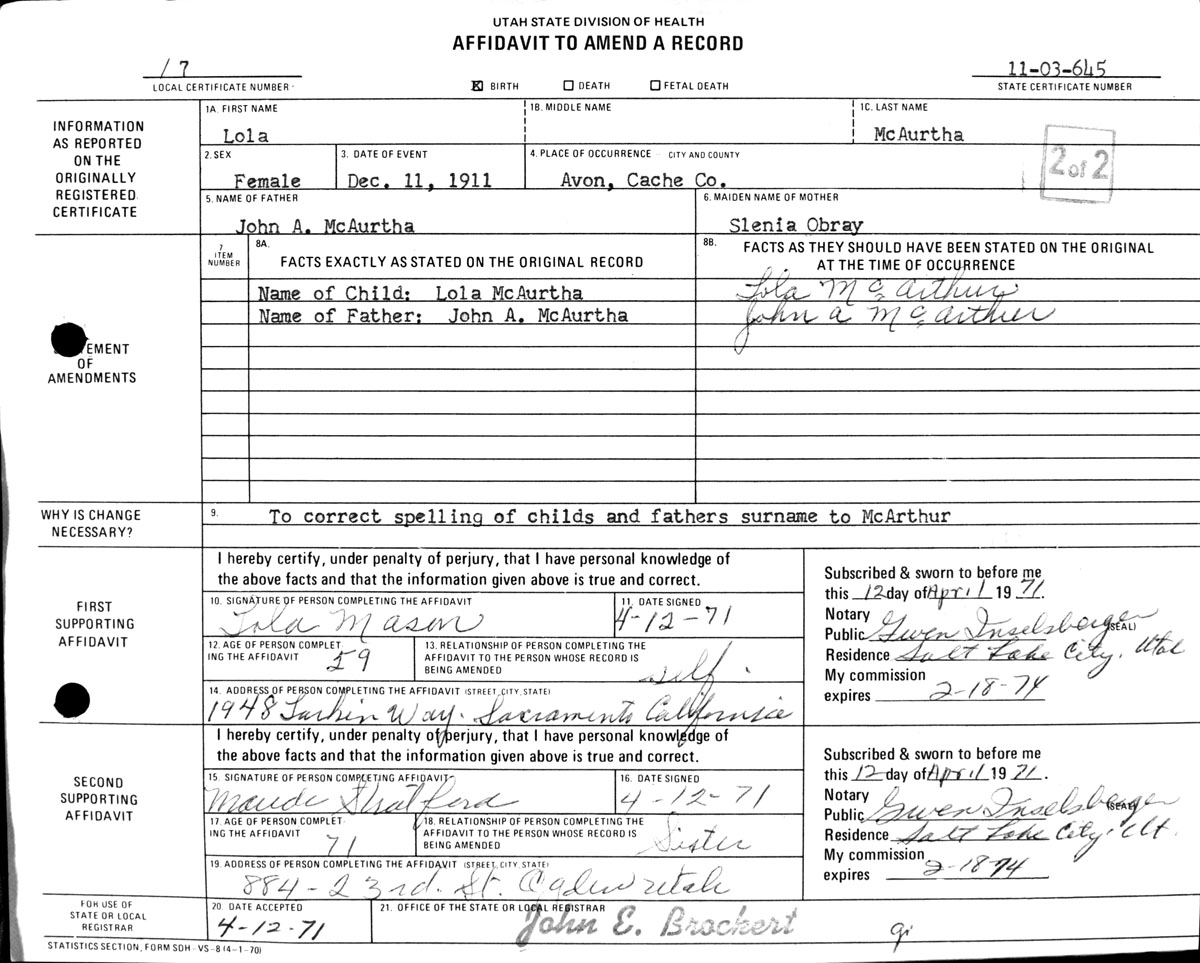 UTAH STATE DIVISION OF HEALTH
AFFIDAVIT TO AMEND A RECORD
17
LOCAL CERTIFICATE NUMBER
X BIRTH DEATH FETAL DEATH
11-03-645
STATE CERTIFICATE NUMBER
INFORMATION
AS REPORTED
ON THE
ORIGINALLY
REGISTERED
CERTIFICATE
1A. FIRST NAME 1B. MIDDLE NAME 1C. LAST NAME
Lola McAurtha
2 of 2
2. SEX 3. DATE OF EVENT 4. PLACE OF OCCURRENCE CITY AND COUNTY
Female Dec. 11, 1911 Avon, Cache Co.
5. NAME OF FATHER 6. MAIDEN NAME OF MOTHER
John A. McAurtha Slenia Obray
EMENT
OF
AMENDMENTS
7 ITEM NUMBER
8A. FACTS EXACTLY AS STATED ON THE ORIGINAL RECORD
8B. FACTS AS THEY SHOULD HAVE BEEN STATED ON THE ORIGINAL
AT THE TIME OF OCCURRENCE
Name of Child: Lola McAurtha Lola McArthur
Name of Father: John A. McAurtha John A McArther
WHY IS CHANGE
NECESSARY?
9. To correct spelling of childs and fathers surname to McArthur
FIRST
SUPPORTING
AFFIDAVIT
I hereby certify, under penalty of perjury, that I have personal knowledge of
the above facts and that the information given above is true and correct.
10. SIGNATURE OF PERSON COMPLETING THE AFFIDAVIT 11. DATE SIGNED
Lola Mason 4-12-71
12. AGE OF PERSON COMPLET
ING THE AFFIDAVIT 59
13. RELATIONSHIP OF PERSON COMPLETING THE
AFFIDAVIT TO THE PERSON WHOSE RECORD IS
BEING AMENDED self
14. ADDRESS OF PERSON COMPLETING THE AFFIDAVIT (STREET, CITY, STATE)
1948 Larkin Way. Sacramento California
Subscribed & sworn to before me
this 12 day of April 1971.
Notary
Public Gwen Inselsberger (SEAL)
Residence Salt Lake City, Utah
My commission
expires 2-18-74
SECOND
SUPPORTING
AFFIDAVIT
I hereby certify, under penalty of perjury, that I have personal knowledge of
the above facts and that the information given above is true and correct.
15. SIGNATURE OF PERSON COMPLETING AFFIDAVIT 16. DATE SIGNED
Maude Stratford 4-12-71
17. AGE OF PERSON COMPLET
ING THE AFFIDAVIT 71
18. RELATIONSHIP OF PERSON COMPLETING THE
AFFIDAVIT TO THE PERSON WHOSE RECORD IS
BEING AMENDED Sister
19. ADDRESS OF PERSON COMPLETING THE AFFIDAVIT (STREET, CITY, STATE)
884-23rd. St. Ogden Utah
Subscribed & sworn to before me
this 12 day of April 1971.
Notary
Public Gwen Inselsberger (SEAL)
Residence Salt Lake City, Ut.
My commission
expires 2-18-74
FOR USE OF
STATE OR LOCAL
REGISTRAR
20. DATE ACCEPTED 21. OFFICE OF THE STATE OR LOCAL REGISTRAR
4-12-71 John E. Brockert
STATISTICS SECTION, FORM SDH-VS-8 (4-1-70)